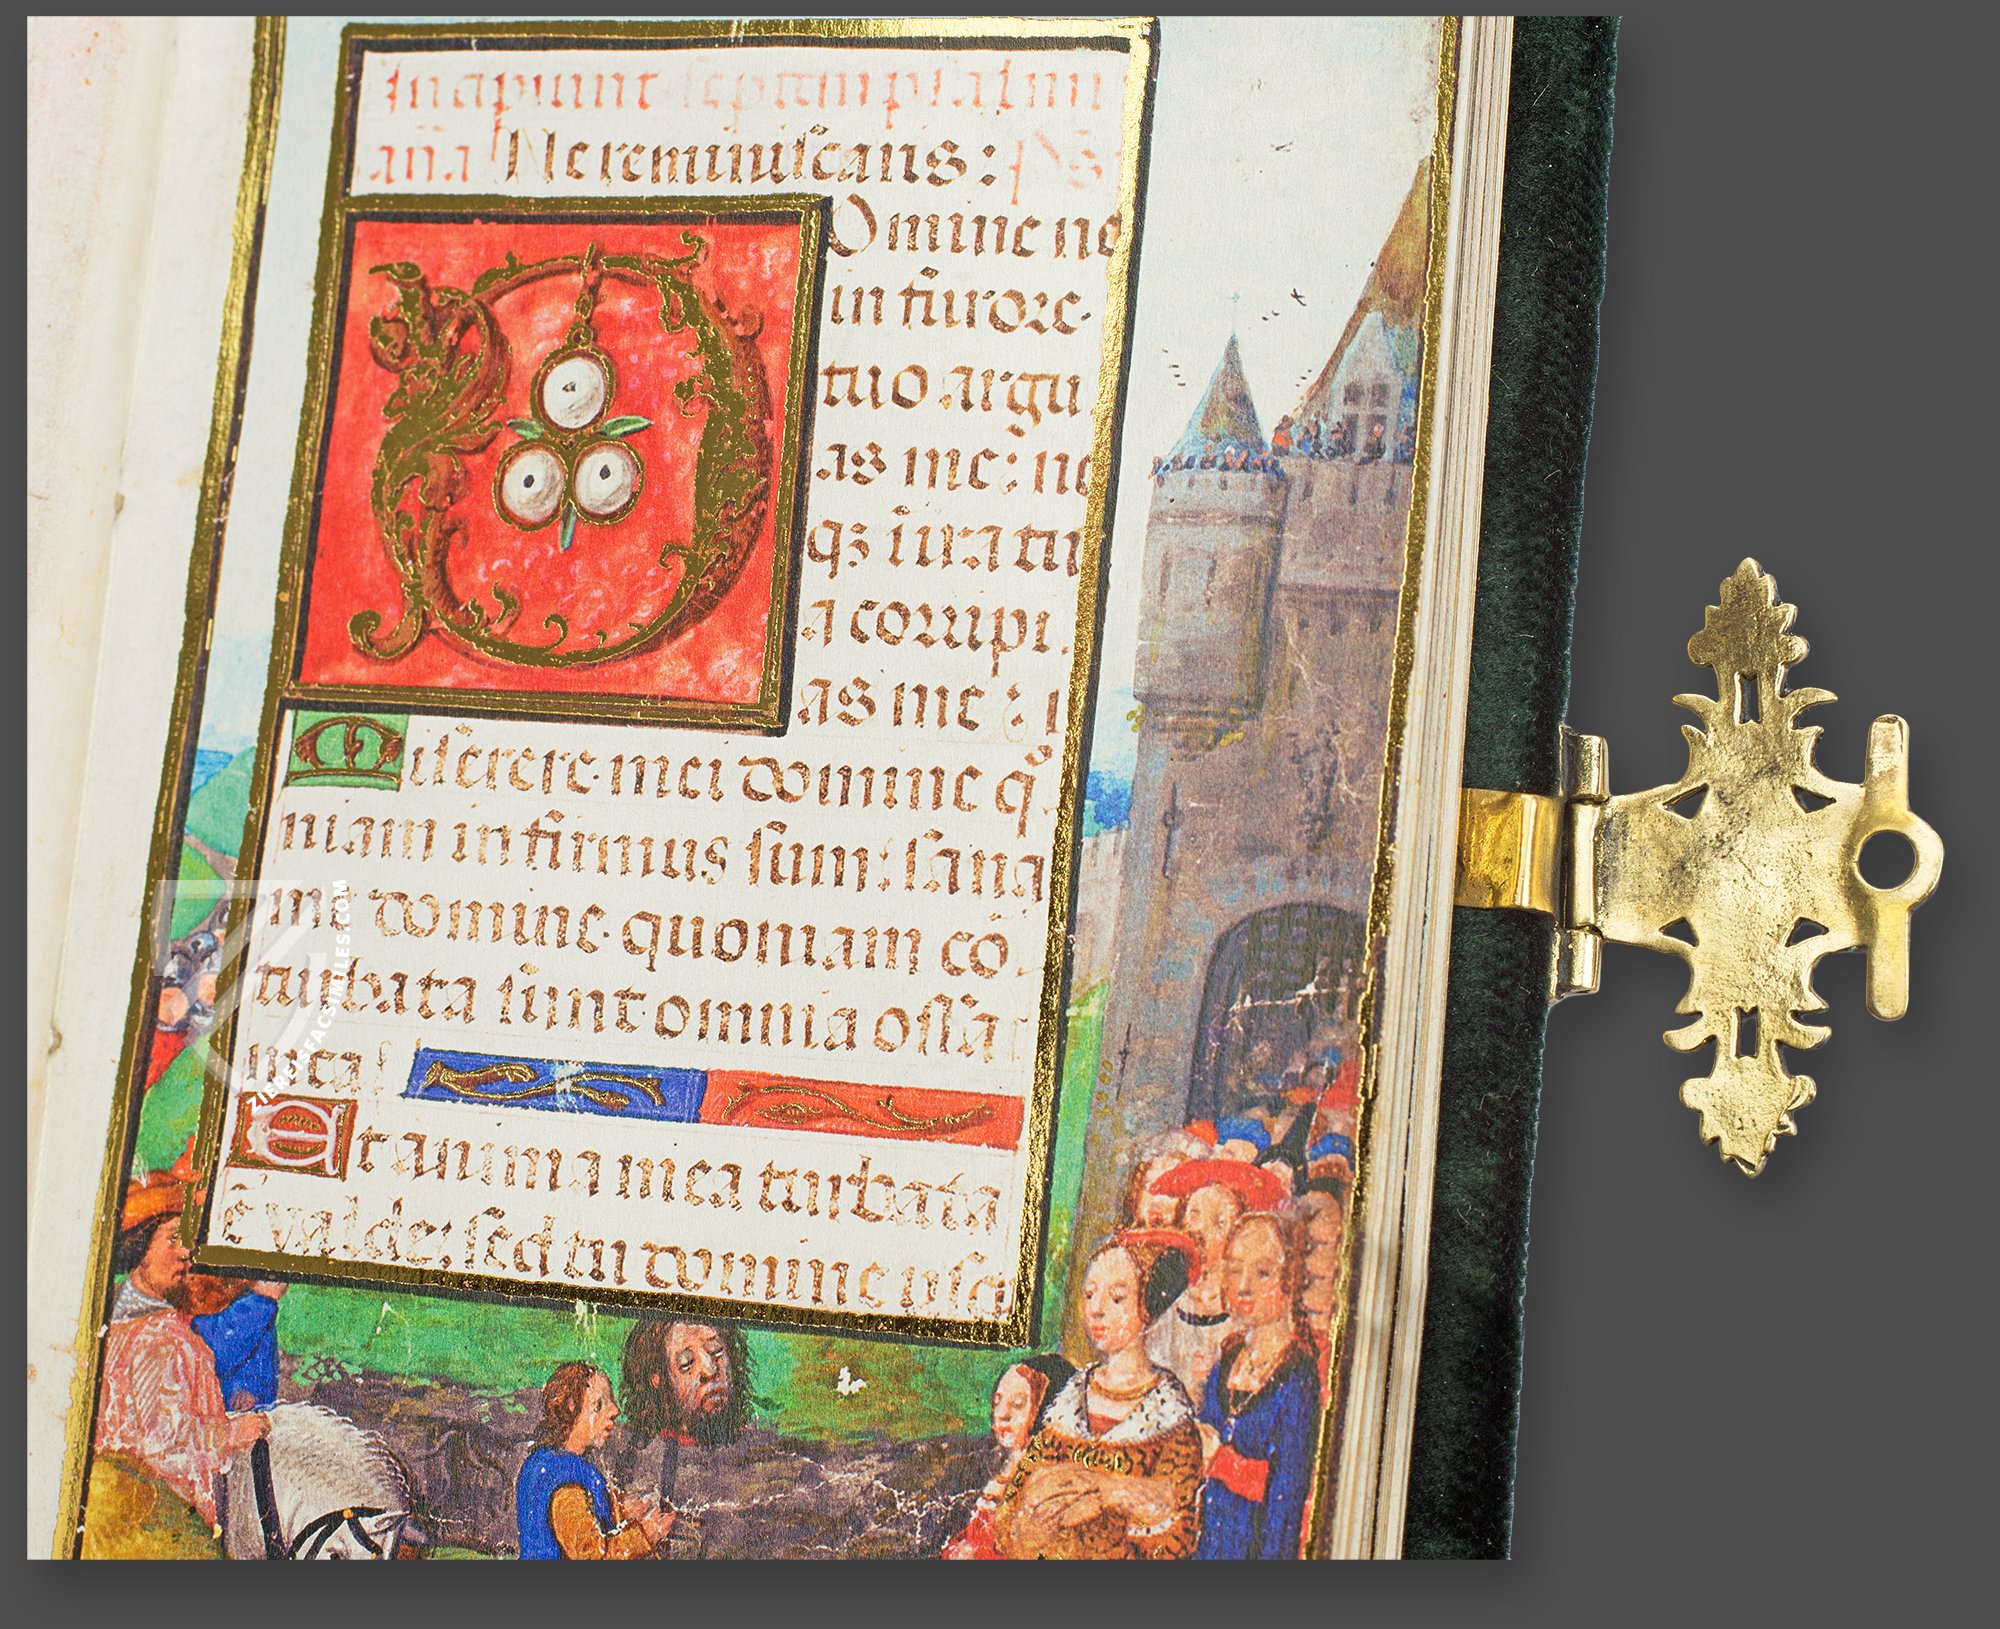 Incipiunt septem psalmi
ana Ne reminiscaris: Ps
Omine ne
in furore
tuo argu
as me: ne
qꝫ in ira tu
a corripi
as me:
Miserere mei domine qº
niam infirmus sum: sana
me domine quoniam cō
turbata sunt omnia ossa
mea
Et anima mea turbata
ē valde: sed tu domine usq
ZIEREISFACSIMILES.COM